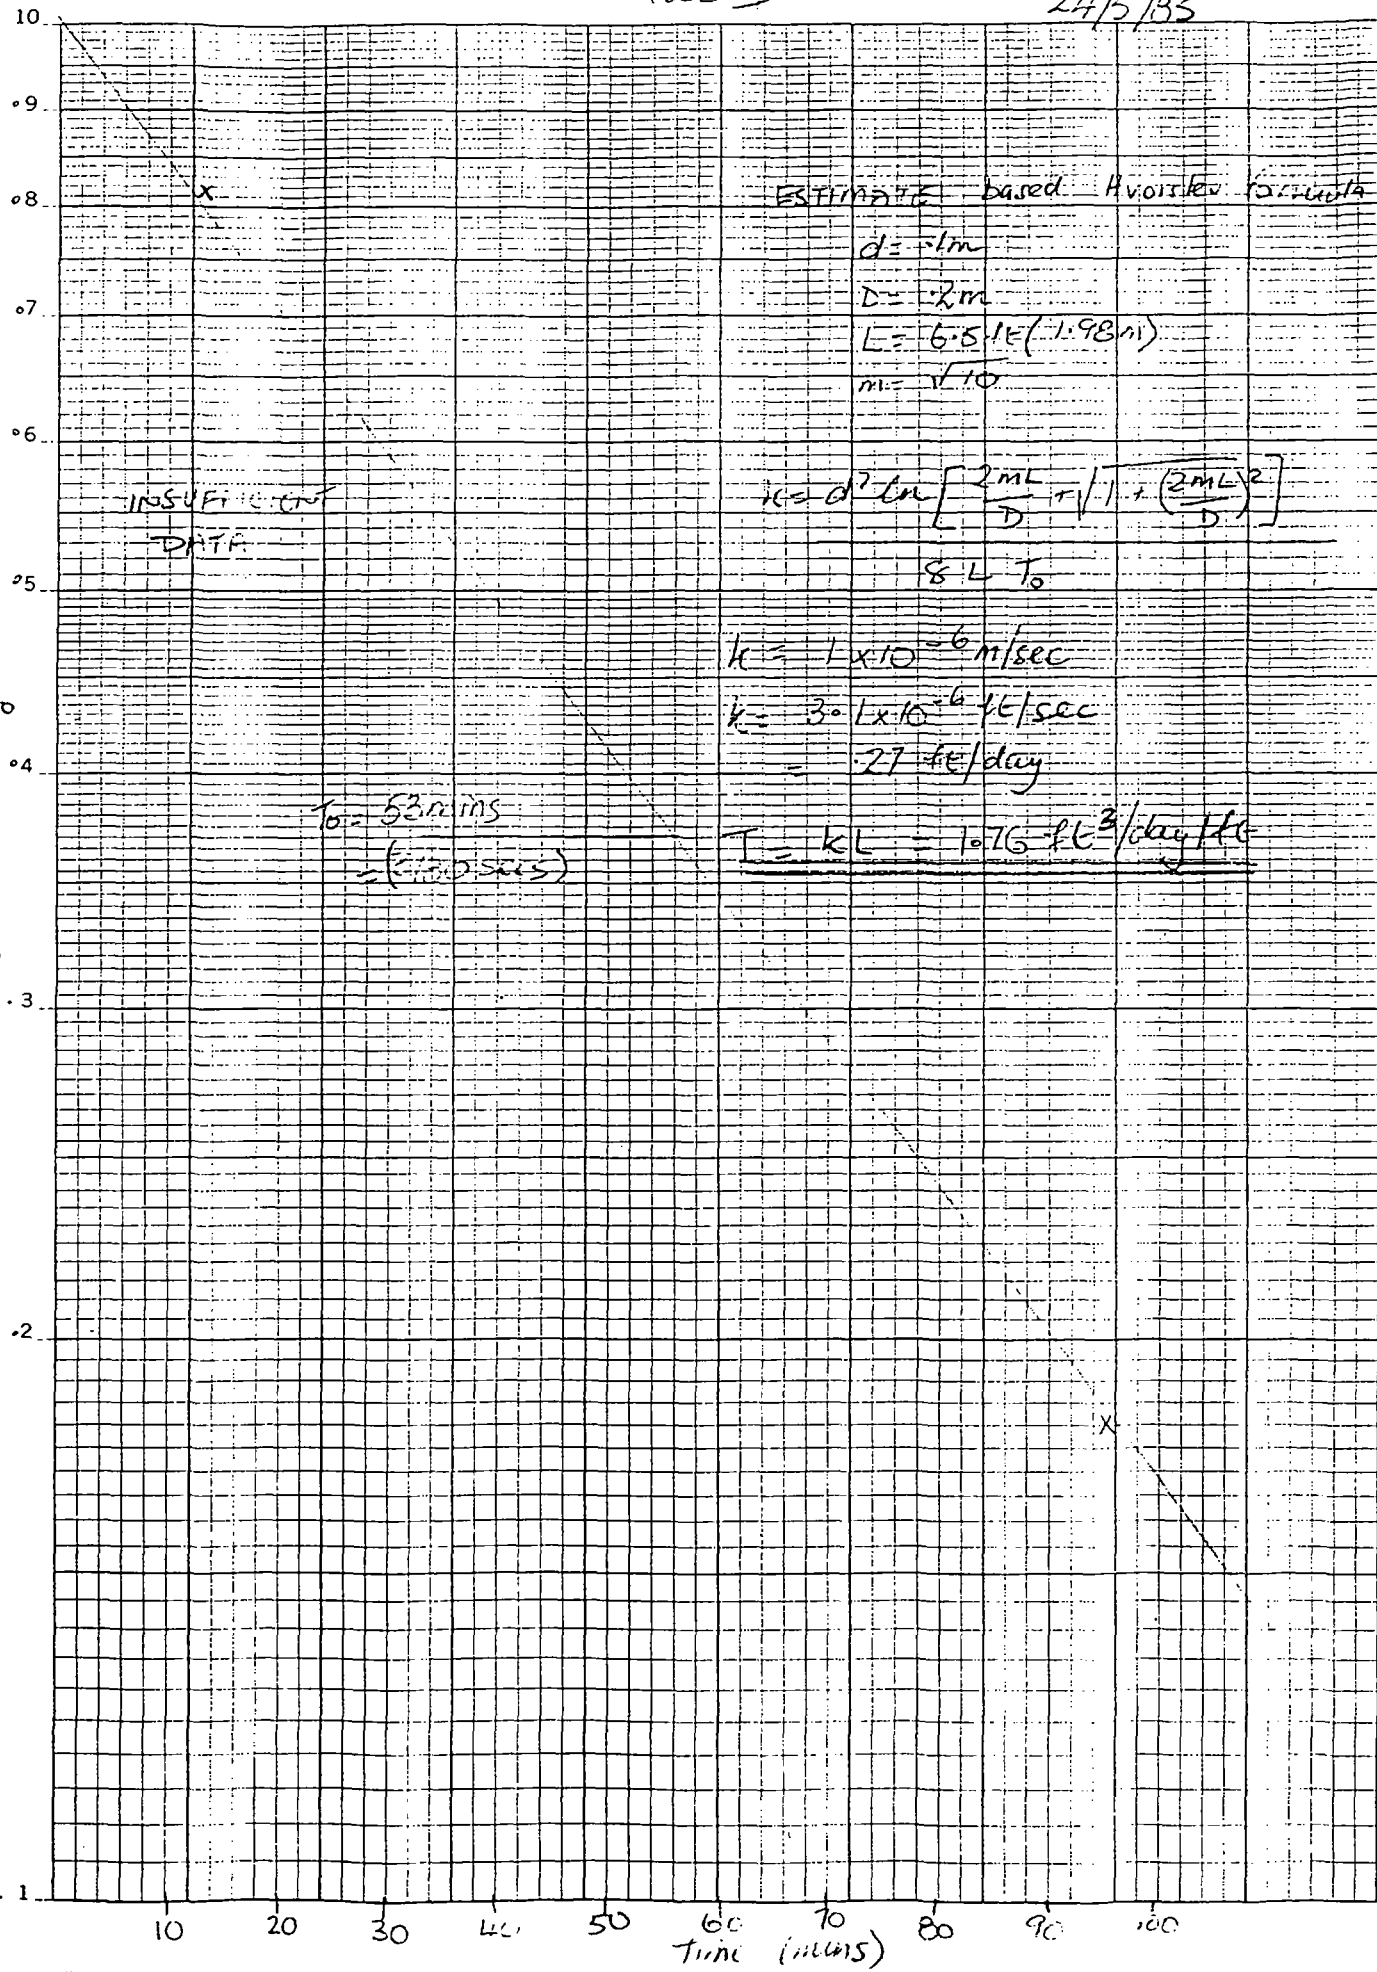 24/5/85
10
.9
.8
ESTIMATE based Hvorslev formula
d = .1m
D = .2m
.7
L = 6.5 ft (1.98m)
m = √10
.6
INSUFFICIENT
DATA
k = d² ln [ 2mL/D + √1 + (2mL/D)² ]
8 L T₀
.5
k = 1 x 10⁻⁶ m/sec
k = 3.1 x 10⁻⁶ ft/sec
= .27 ft/day
.4
T₀ = 53 mins
T = kL = 1.76 ft³/day/ft
.3
.2
.1
10 20 30 40 50 60 70 80 90 100
Time (mins)